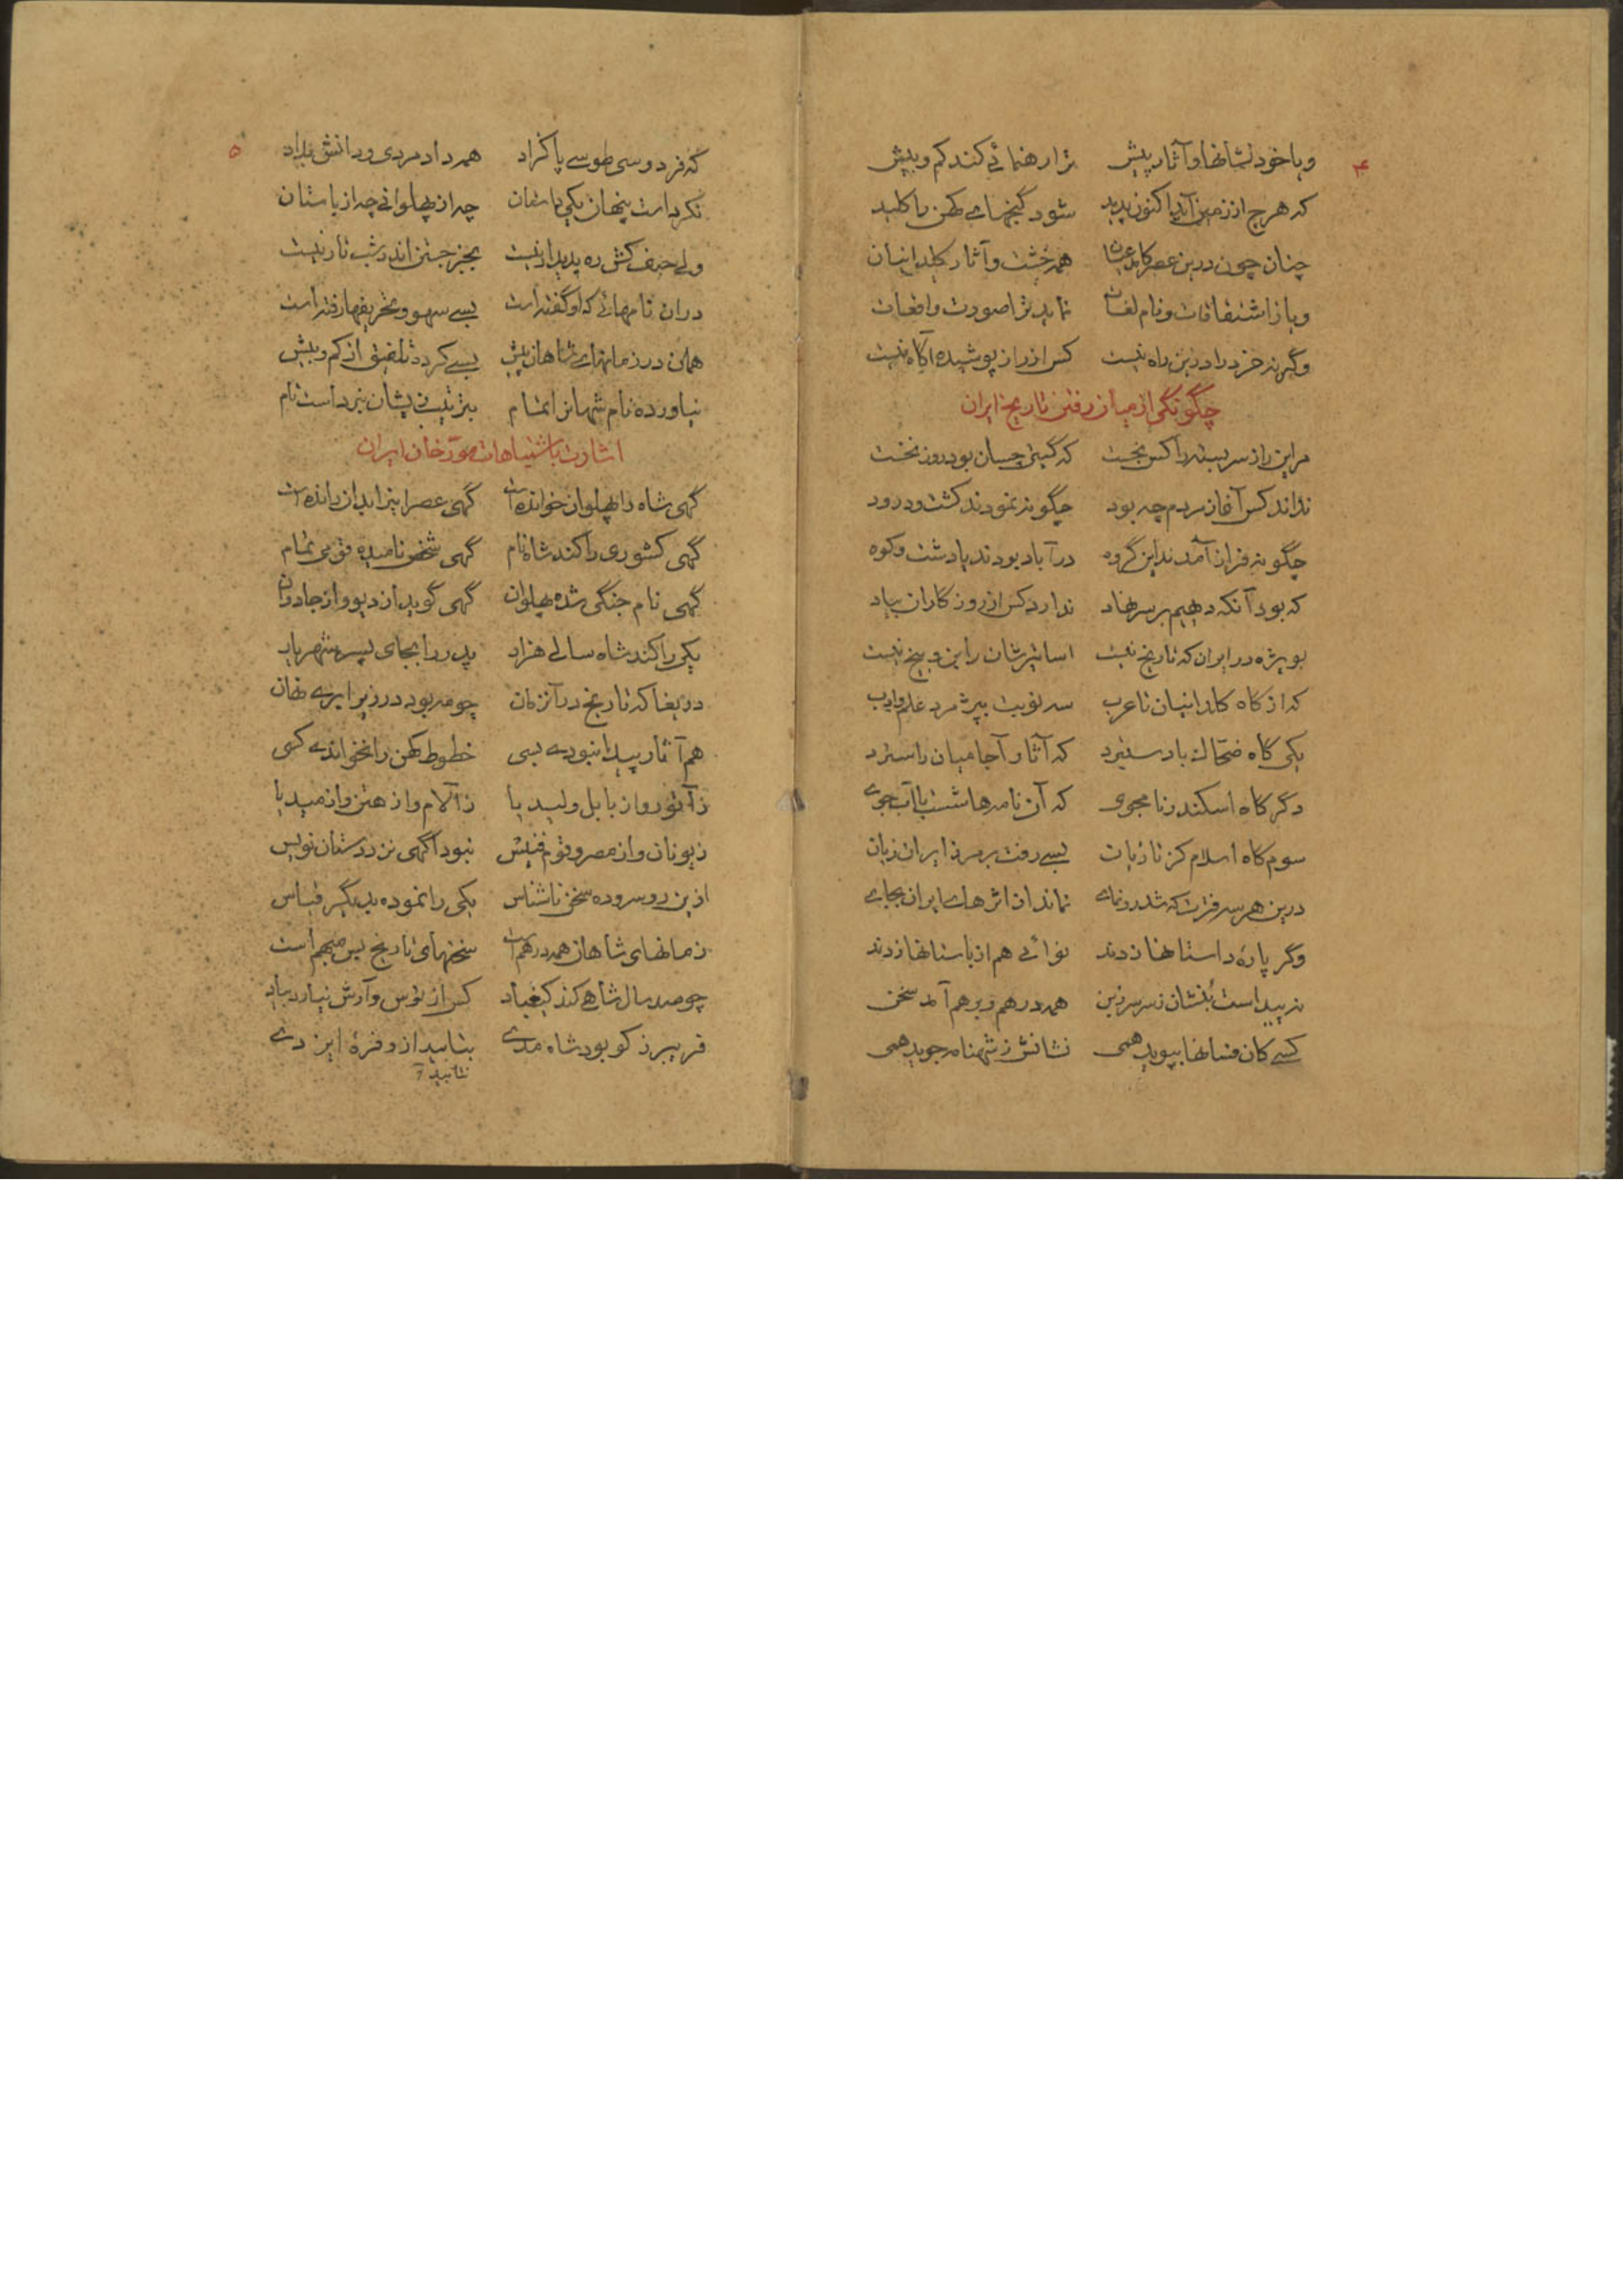 ۴
و یا خود نشانها و آثار پیش ترا رهنمائی کند کم و بیش
که هرچ از زمین آید اکنون پدید شود گنجهای کهن را کلید
چنان چون درین عصر همه خشت و آثار کلدانیان
و یا ز اشتقاقات و نام لغات نماید ترا صورت واقعات
وگرنه خرد را درین راه نیست کس از راز پوشیده آگاه نیست
چگونگی از میان رفتن تاریخ ایران
مر این راز سربسته را کس نجست که گیتی چسان بود روز نخست
نداند کس آغاز مردم چه بود چگونه نمودند کشت و درود
چگونه فراز آمدند این گروه در آباد بودند یا دشت و کوه
که بود آنکه دهیم بر سر نهاد ندارد کس از روزگاران بیاد
بویژه در ایران که تاریخ نیست اساتیرشان را بن و بیخ نیست
که از گاه کلدانیان تا عرب سه نوبت بپژمرد علم و ادب
یکی گاه ضحاک بادستبرد که آثار آجامیان را سترد
دگر گاه اسکندر نامجوی که آن نامه‌ها شست با آب جوی
سوم گاه اسلام کز تازیان بسی رفت بر مرز ایران زیان
درین هر سه فترت که شد رونمای نماند از اثرهای ایران بجای
وگر پارهٔ داستانها زدند نوائی هم از باستانها زدند
نه پیداست بنشان ز سر سر ز بن همه درهم و برهم آمد سخن
کسی کان فسانها بپوید همی نشانش ز شهنامه جوید همی
۵
که فردوسی طوسی پاکزاد همه داد مردی و دانش بداد
نکرد است پنهان یکی داستان چه از پهلوانی چه از باستان
ولی حرف کش ره پدیدار نیست بجز جستن اندر شب تار نیست
دران نامهائی که او گفته است بسی سهو و تحریفها رفته است
همان در زمانهای شاهان پیش بسی کرده تلفیق از کم و بیش
نیاورده نام شهانرا تمام بترتیب پیشان نبرداست نام
اشارت باشتباهات مورخان ایران
گهی شاه را پهلوان خوانده است گهی عصر این را بدان رانده است
گهی کشوری را کند شاه نام گهی شخص نامیده قومی تمام
گهی نام جنگی شده پهلوان گهی گوید از دیو و از جادوان
یکی را کند شاه سالی هزار پدر را بجای پسر شهریار
دریغا که تاریخ در آنزمان چو مه بود در زیر ابری نهان
هم آثار پیدا نبودی بسی خطوط کهن را نخواندی کسی
ز آثور و از بابل و لیدیا ز آلام و از هتن و از میدیا
ز یونان و از مصر و قوم فنیش نبود آگهی نزد دستان نویس
ازین رو سروده سخن ناشناس یکی را نموده بدیگر قیاس
زمانهای شاهان همه درهم است سخنهای تاریخ بس مبهم است
چو صد سال شاهی کند کیقباد کس از توس و آرش نیارد بیاد
فریبرز کو بود شاه مدی بتابید ازو فرهٔ ایزدی